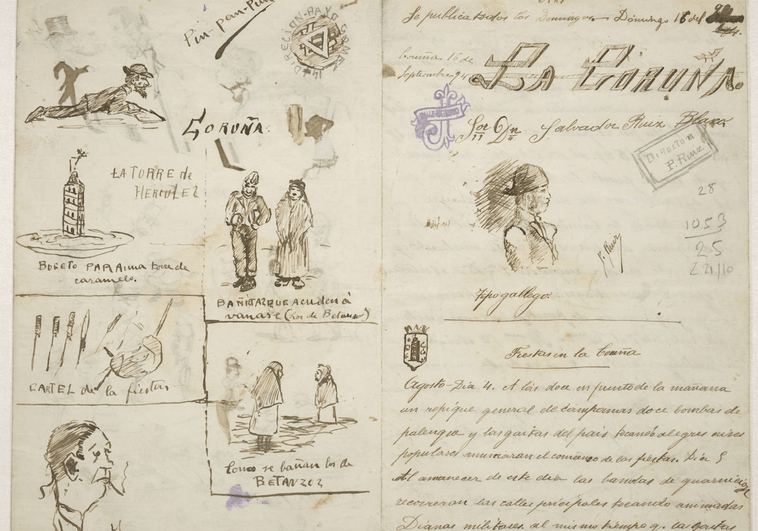 Pin-pan-Pun
DIRECCION
CORUÑA
LA TORRE de
HERCULEZ
BOZETO PARA una torre de
caramelo.
BAÑITAZ QUE acuden á
vanarse (los de Betanzos)
CARTEL de las fiestas
Como se bañan los de
BETANZOZ
Se publica todos los Domingos — Domingo 16 del
Coruña 16 de
Septiembre 94
LA CORUÑA
Sor Dn Salvador Ruiz Blasco
DIRECTOR
P. RUIZ
28
1053
25
P. Ruiz
Tipo gallego
Fiestas en la Coruña
Agosto - Dia 4. A las doce en punto de la mañana
un repique general de campanas doce bombas de
palenque y las gaitas del pais tocando alegres aires
populares anunciaran el comienzo de las fiestas. Dia 5
Al amanecer de este dia las bandas de guarnicion
recorreran las calles principales tocando animadas
Dianas militares, al mismo tiempo q. las gaitas